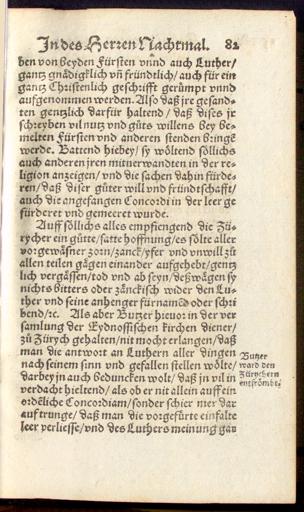 In des Herren Nachtmal. 82
ben von beyden Fürsten vnnd auch Luther/
gantz gnädigklich vn̄ fründtlich/ auch für ein
gantz Christenlich geschrifft gerümpt vnnd
auffgenommen werden. Also daß jre gesand-
ten gentzlich darfür haltend / daß dises jr
schreyben vil nutz vnd gůts willens bey be-
melten Fürsten vnd anderen stenden bringē
werde. Battend hiebey/ sy wöltend söllichs
auch anderen jren mituerwandten in der re-
ligion anzeigen/ vnd die sachen dahin fürde-
ren/ daß diser gůter will vnd fründtschafft/
auch die angefangen Concordi in der leer ge
fürderet vnd gemeeret wurde.
Auff söllichs alles empfiengend die Zü-
rycher ein gůtte/ satte hoffnung/ es sölte aller
vorgewäßner zorn/ zanck/ yfer vnd vnwill zů
allen teilen gägen einander auffgehebt/ gentz
lich vergässen/ tod vnd ab seyn/ deßwägen sy
nichts bitters oder zänckisch wider den Lu-
ther vnd seine anhenger fürnamēd oder schri
bend/ ꝛc. Als aber Butzer hieuor in der ver
samlung der Eydnossischen kirchen diener/
zů Zürych gehalten/ nit mocht erlangen/ daß
man die antwort an Luthern aller dingen
nach seinem sinn vnd gefallen stellen wölte/
darbey jn auch beduncken wolt/ daß jn vil in
verdacht hieltend/ als ob er nit allein auff ein
ordēliche Concordiam/ sonder schier mer dar
auff trunge/ daß man die vorgefürte einfalte
leer verliesse/ vnd des Luthers meinung gar
Butzer
ward den
Zürychern
entfrömbt.